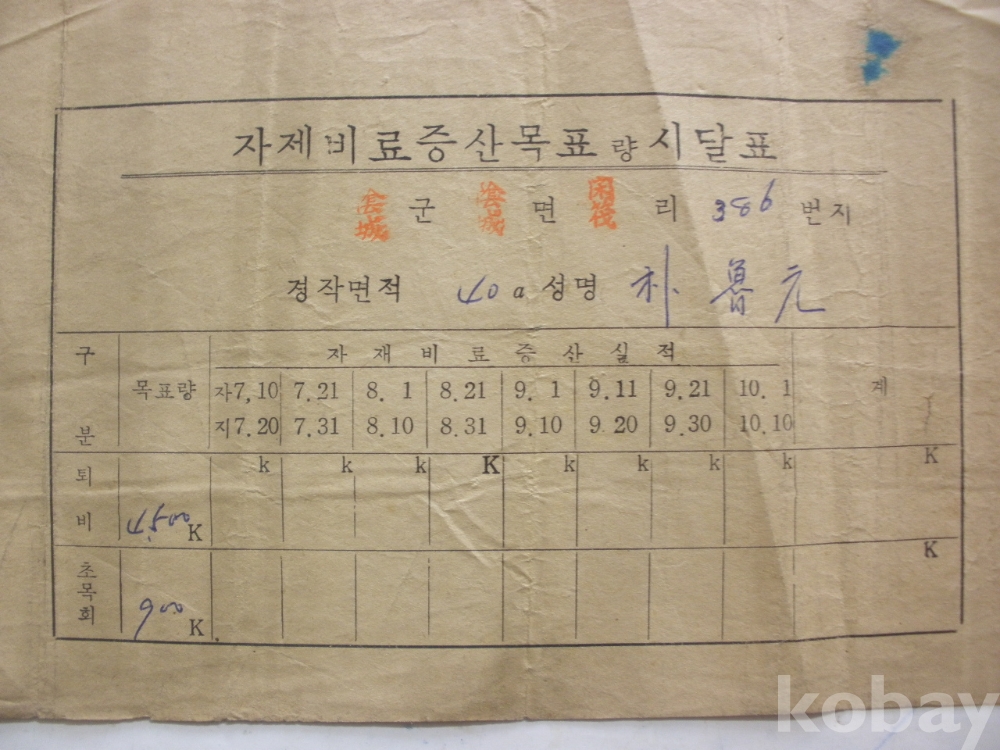 자제비료증산목표량시달표
군 면 리 386 번지
경작면적 40a 성명 朴魯元
구분 목표량 자재비료증산실적 계
자7,10 7.21 8.1 8.21 9.1 9.11 9.21 10.1
지7.20 7.31 8.10 8.31 9.10 9.20 9.30 10.10
퇴비 4,500K k k k K k k k k K
초목회 900K K
kobay